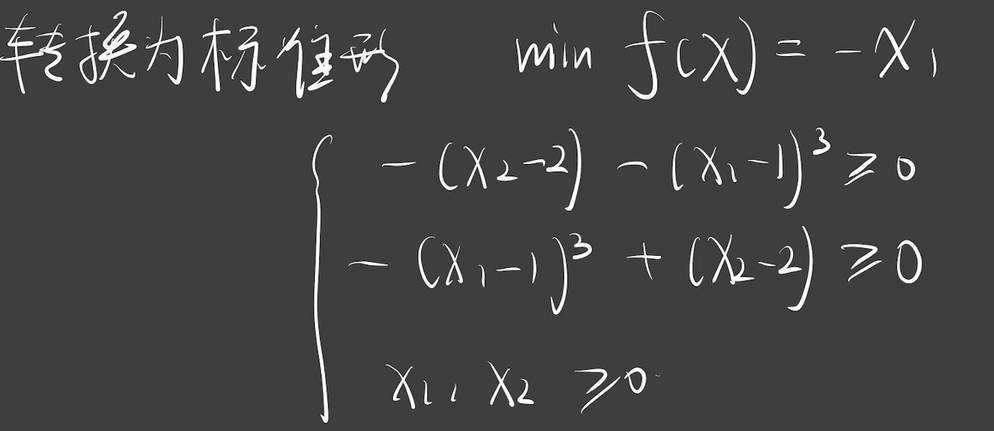 转换为标准形 min f(X) = -X₁
-(X₂-2) - (X₁-1)³ ≥ 0
-(X₁-1)³ + (X₂-2) ≥ 0
X₁, X₂ ≥ 0